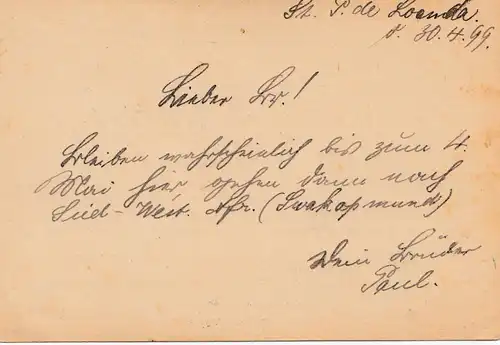 St. P. de Loanda.
d. 30.4.99.
Lieber Br.!
Bleiben wahrscheinlich bis zum 4.
Mai hier gehen dann nach
Süd-West. Afr. (Swakopmund)
Dein Bruder
Paul.